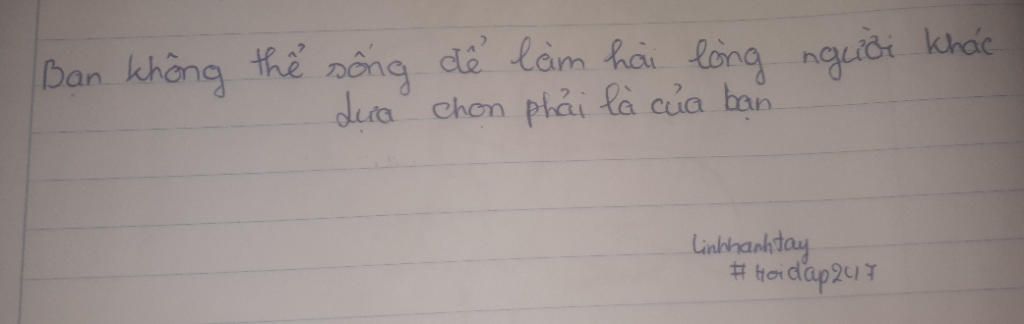 Bạn không thể sống để làm hài lòng người khác
dựa chọn phải là của bạn
linhhanhtay
#Hoidap247